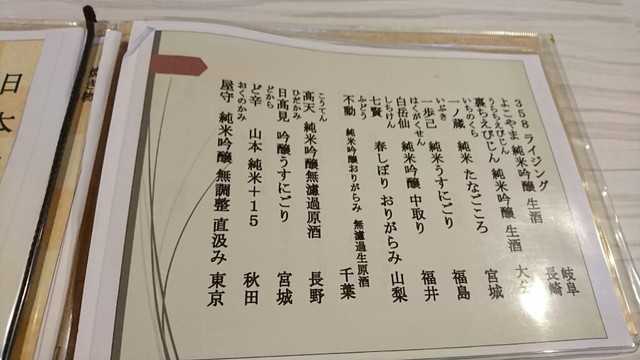 358 ライジング 岐阜
よこやま 純米吟醸 生酒 長崎
うらちえびじん
裏ちえびじん 純米吟醸 生酒 大分
いちのくら
一ノ蔵 純米 たなごころ 宮城
いぶき
一歩己 純米うすにごり 福島
はくがくせん
白岳仙 純米吟醸 中取り 福井
しちけん
七賢 春しぼり おりがらみ 山梨
ふどう
不動 純米吟醸おりがらみ 無濾過生原酒 千葉
こうてん
髙天 純米吟醸無濾過原酒 長野
ひだかみ
日高見 吟醸うすにごり 宮城
どから
ど辛 山本 純米+15 秋田
おくのかみ
屋守 純米吟醸 無調整 直汲み 東京
焼き物
日本